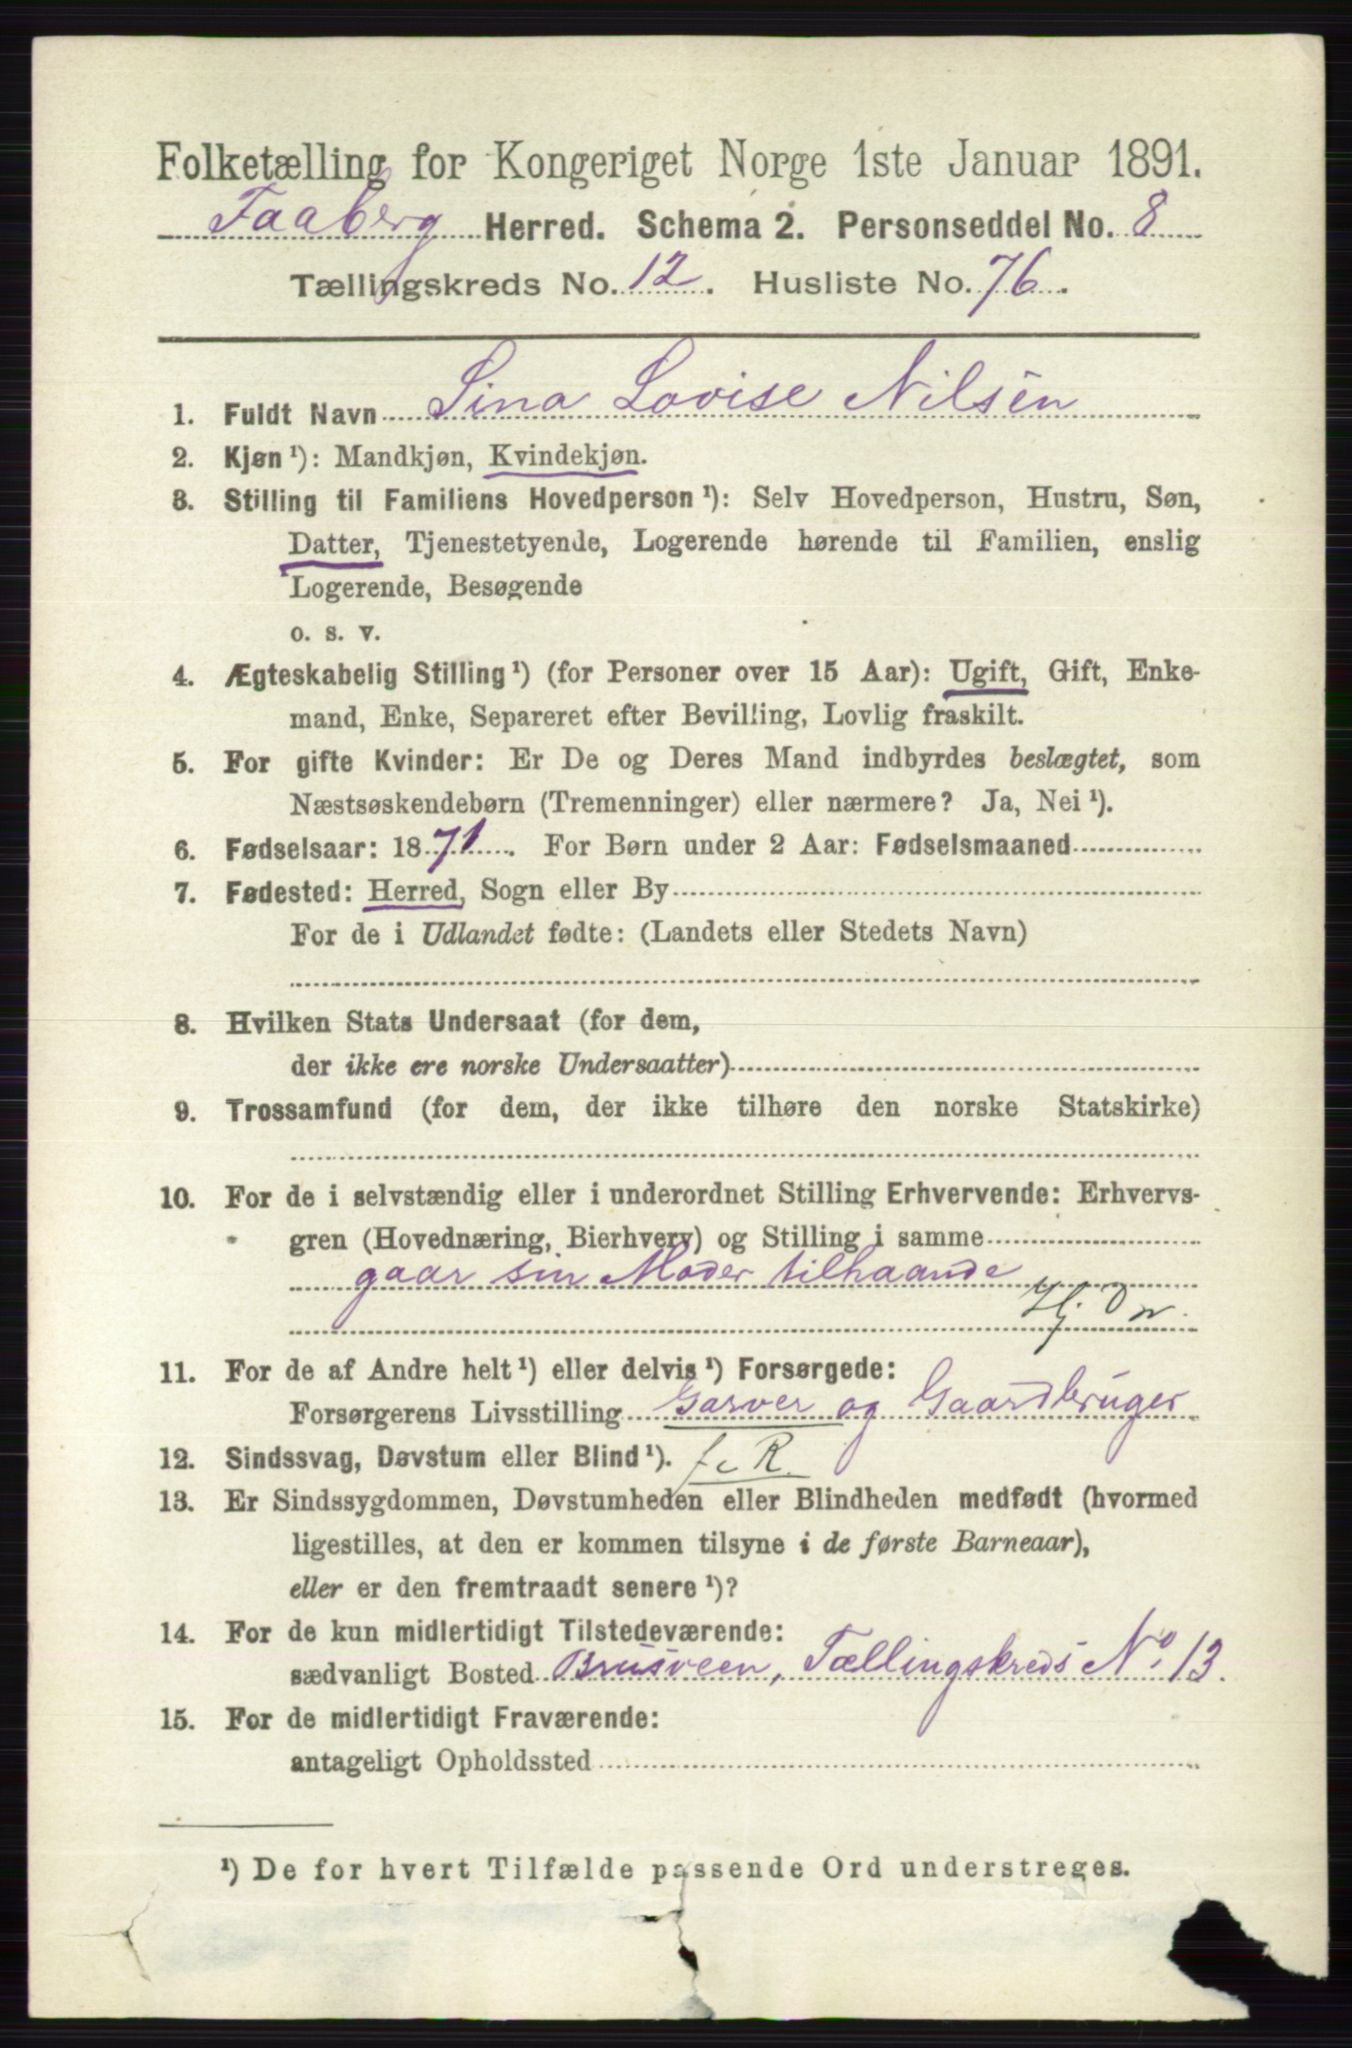 Folketælling for Kongeriget Norge 1ste Januar 1891.
Faaberg Herred. Schema 2. Personseddel No. 8
Tællingskreds No. 12. Husliste No. 76.
1. Fuldt Navn Sina Lovise Nilsen
2. Kjøn ¹): Mandkjøn, Kvindekjøn.
3. Stilling til Familiens Hovedperson ¹): Selv Hovedperson, Hustru, Søn,
Datter, Tjenestetyende, Logerende hørende til Familien, enslig
Logerende, Besøgende
o. s. v.
4. Ægteskabelig Stilling ¹) (for Personer over 15 Aar): Ugift, Gift, Enke-
mand, Enke, Separeret efter Bevilling, Lovlig fraskilt.
5. For gifte Kvinder: Er De og Deres Mand indbyrdes beslægtet, som
Næstsøskendebørn (Tremenninger) eller nærmere? Ja, Nei ¹).
6. Fødselsaar: 1871. For Børn under 2 Aar: Fødselsmaaned
7. Fødested: Herred, Sogn eller By
For de i Udlandet fødte: (Landets eller Stedets Navn)
8. Hvilken Stats Undersaat (for dem,
der ikke ere norske Undersaatter)
9. Trossamfund (for dem, der ikke tilhøre den norske Statskirke)
10. For de i selvstændig eller i underordnet Stilling Erhvervende: Erhvervs-
gren (Hovednæring, Bierhverv) og Stilling i samme
gaar sin Moder tilhaande
11. For de af Andre helt ¹) eller delvis ¹) Forsørgede:
Forsørgerens Livsstilling Garver og Gaardbruger
12. Sindssvag, Døvstum eller Blind ¹). f. R.
13. Er Sindssygdommen, Døvstumheden eller Blindheden medfødt (hvormed
ligestilles, at den er kommen tilsyne i de første Barneaar),
eller er den fremtraadt senere ¹)?
14. For de kun midlertidigt Tilstedeværende:
sædvanligt Bosted Brusveen, Tællingskreds No 13.
15. For de midlertidigt Fraværende:
antageligt Opholdssted
¹) De for hvert Tilfælde passende Ord understreges.